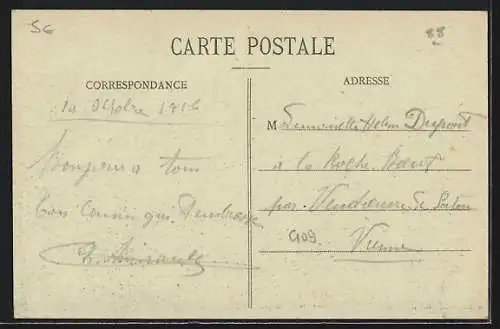 56
88
CARTE POSTALE
CORRESPONDANCE
ADRESSE
10 Octobre 1916
Bonjour a tous
Ton Cousin qui
M demoiselle Dupont
à la Roche
par Vendeuvre de Poitou
G09
Vienne